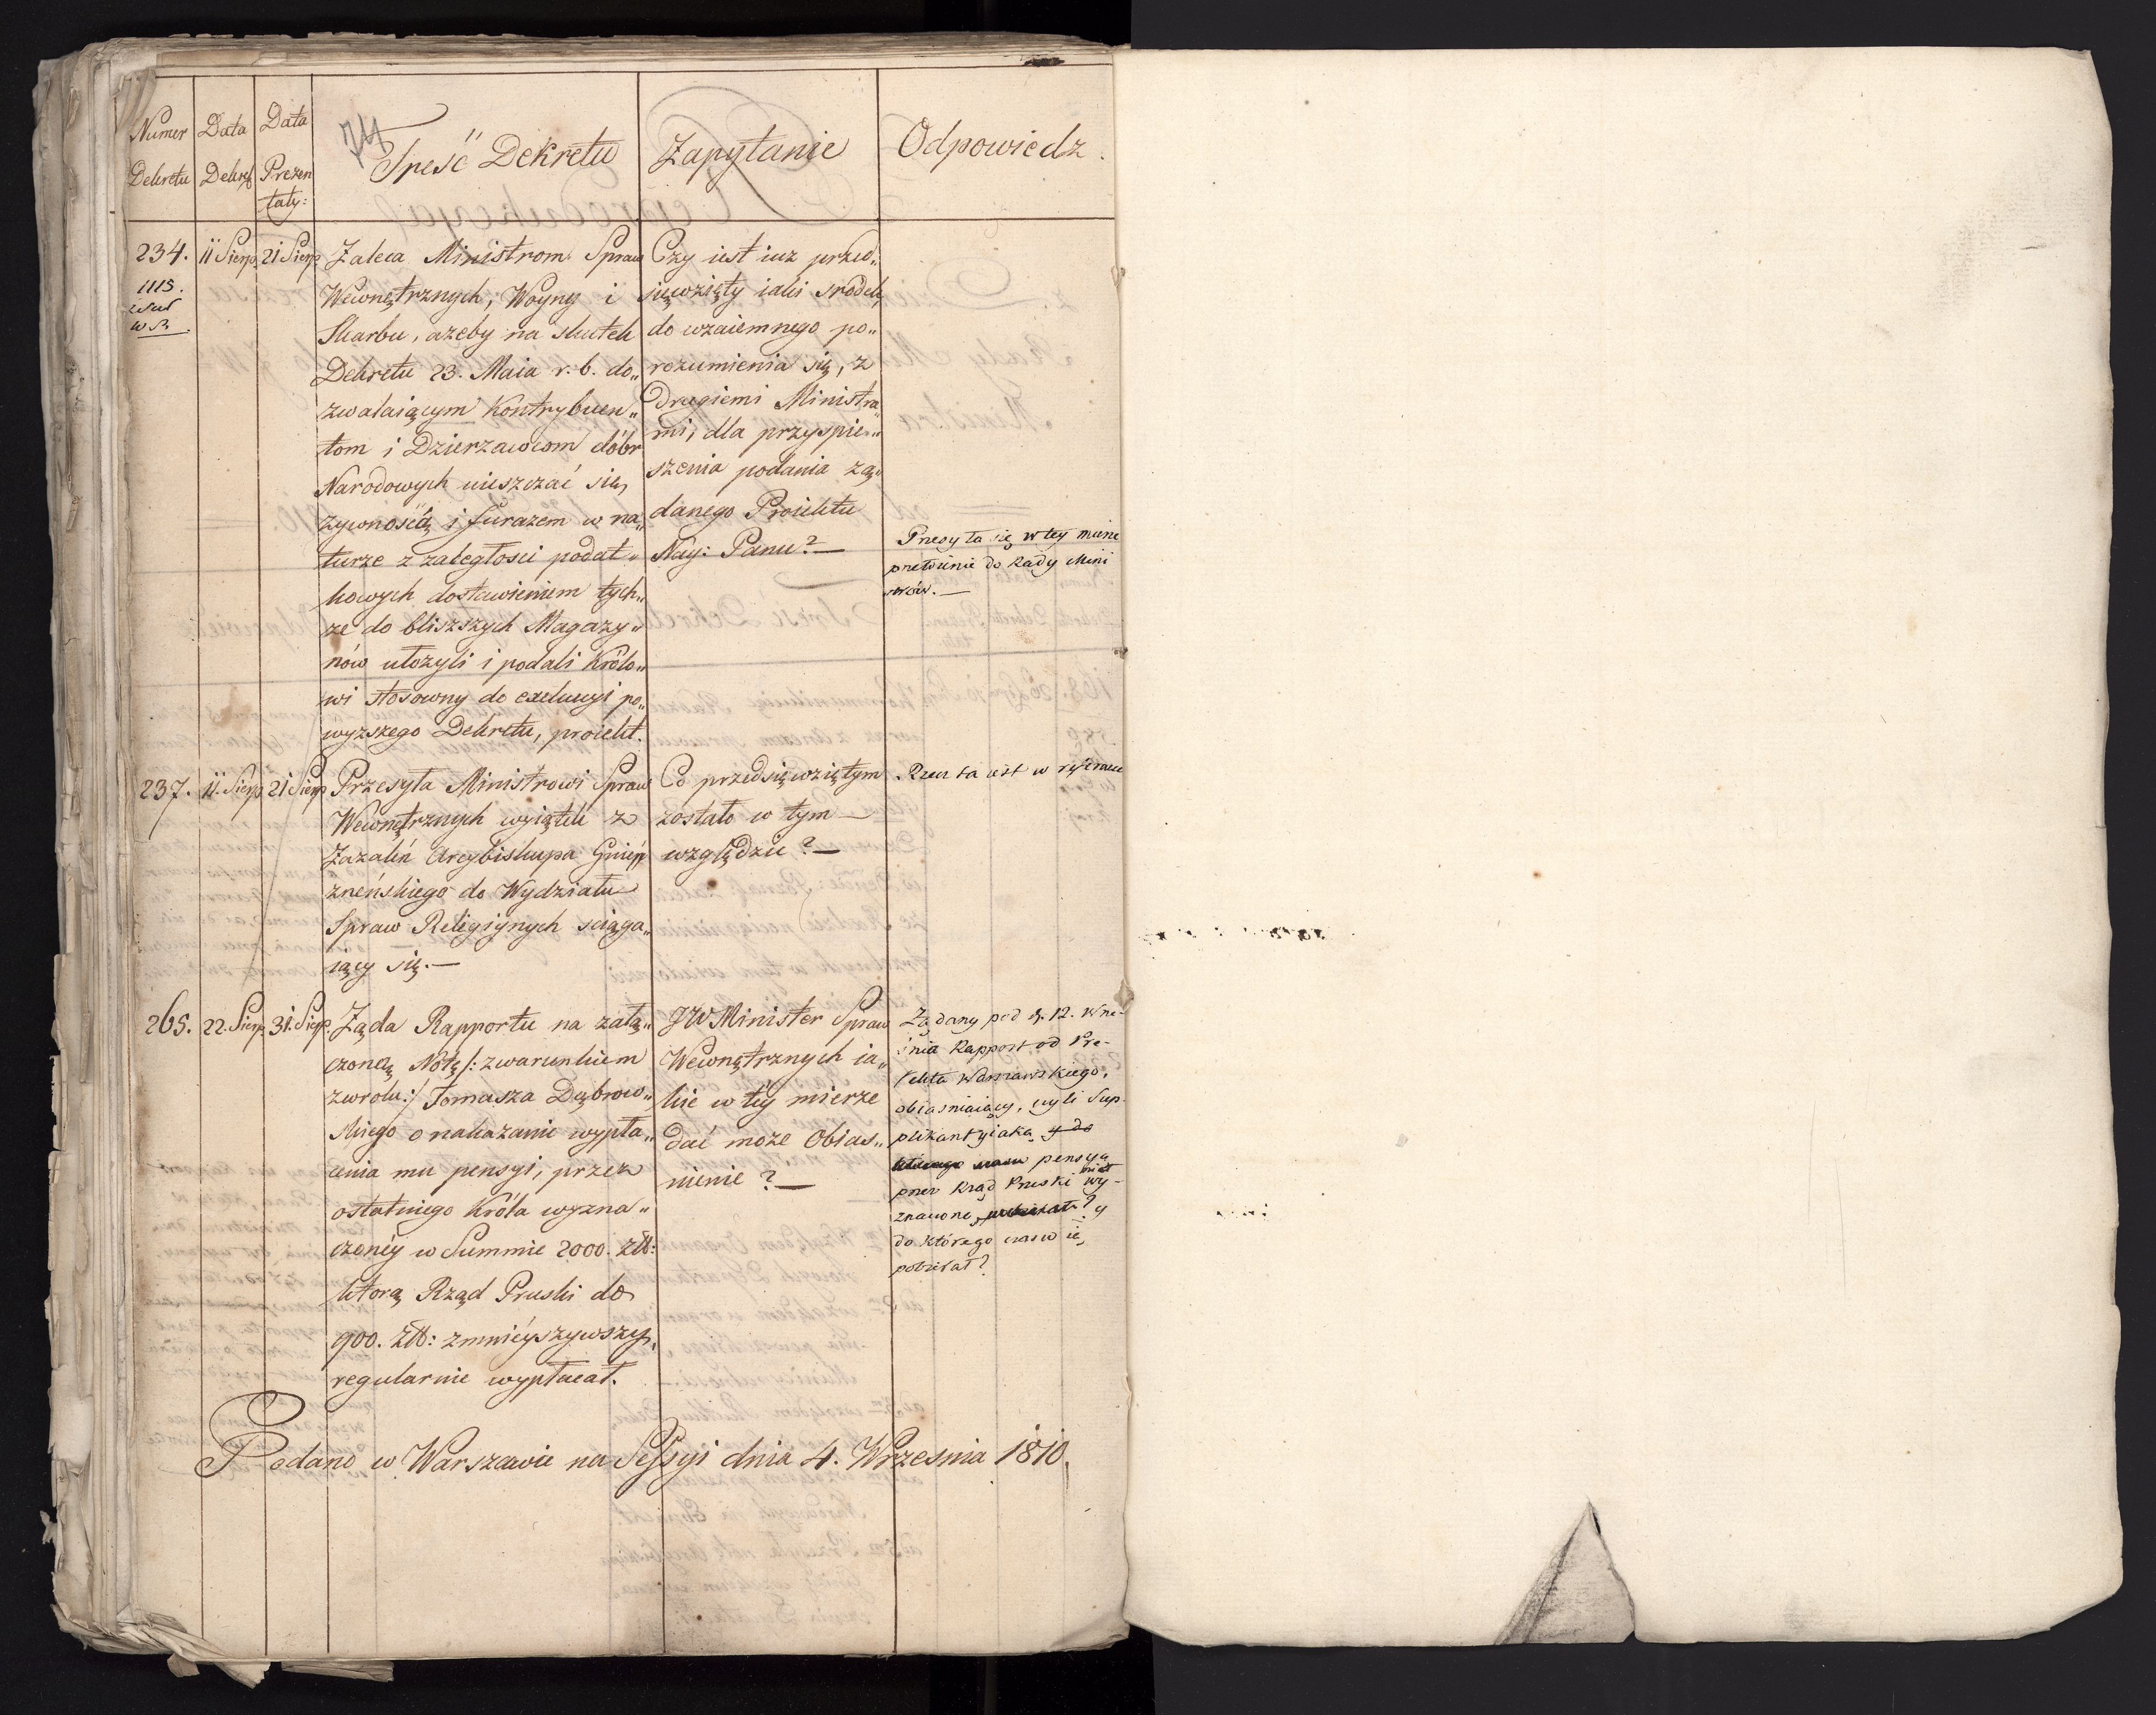 74
Numer
Dekretu
Data
Dekrt
Data
Prezen
taty:
Treść Dekretu
Zapytanie
Odpowiedz.
234.
1113.
w S.
11 Sierp.
21 Sierp.
Zaleca Ministrom Spraw
Wewnętrznych, Woyny i
Skarbu, azeby na skutek
Dekretu 23. Maia r. b. do„
zwalaiącym Kontrybuen„
tom i Dzierzawcom dóbr
Narodowych uiszczać się,
zywnością i furazem w na„
turze z zaległosci podat„
kowych dostawieniem tych„
ze do bliszszych Magazy„
nów ułozyli i podali Królo„
wi stosowny do exekucyi po„
wyzszego Dekretu, proiekt.
Czy iest iuz przed„
sięwzięty iaki srodek,
do wzaiemnego po„
rozumienia się, z
drugiemi Ministra„
mi, dla przyspie„
szenia podania zą„
danego Proiektu
Nay: Panu?—
Przesyła się w tey mierze
przełozenie do Rady Mini
strów.—
237.
11. Sierp.
21 Sierp
Przesyła Ministrowi Spraw
Wewnętrznych wyiątek z
Zazaleń Arcybiskupa Gnie„
znenskiego do Wydziału
Spraw Religiynych sciąga„
iący się.—
Co przedsięwziętym
zostało w tym
względzie?—
Rzecz ta iest w referacie
265.
22. Sierp.
31. Sierp.
Ząda Rapportu na załą„
czoną Notę /: z warunkiem
zwrotu:/ Tomasza Dąbrow„
skiego o nakazanie wypła„
cenia mu pensyi, przez
ostatniego Króla wyzna„
czonéy w Summie 2000. Złł:
którą Rząd Pruski do
900. Złł: zmniéyszywszy,
regularnie wypłacał.
JW Minister Spraw
Wewnętrznych ia„
kie w téy mierze
dać moze Obias„
nienie?—
Ządany pod d. 12. Wrze-
śnia Rapport od Pre-
fekta Warszawskiego,
obiasniaiący, czyli Sup-
plikant iaką y do
którego czasu pensyą
przez Rząd Pruski miał wy-
znaczoną, y
do którego czasu ią
pobierał?
Podano w Warszawie na Sessyi dnia 4. Wrzesnia 1810.